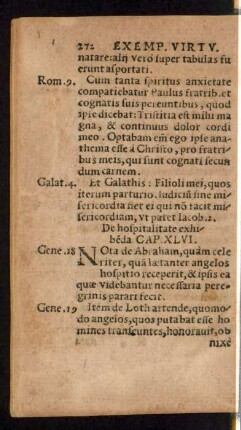 272 EXEMP. VIRTV.
natare: alij vero super tabulas fu
erunt asportati.
Rom. 9. Cum tanta spiritus anxietate
compatiebatur Paulus fratrib. et
cognatis suis pereuntibus, quod
ipse dicebat: Tristitia est mihi ma
gna, & continuus dolor cordi
meo. Optabam em̃ ego ipse ana-
thema esse à Christo, pro fratri
bus meis, qui sunt cognati secun
dum carnem.
Galat. 4. Et Galathis: Filioli mei, quos
iterum parturio. Iudiciũ sine mi
sericordia fiet ei qui nõ facit mi
sericordiam, vt patet Iacob. 2.
De hospitalitate exhi-
bẽda CAP. XLVI.
Gene. 18 NOta de Abraham, quàm cele
riter, quã lætanter angelos
hospitio receperit, & ipsis ea
quæ videbantur necessaria pere-
grinis parari fecit.
Gene. 19 Item de Loth attende, quomo-
do angelos, quos putabat esse ho
mines transeuntes, honorauit, ob
nixè